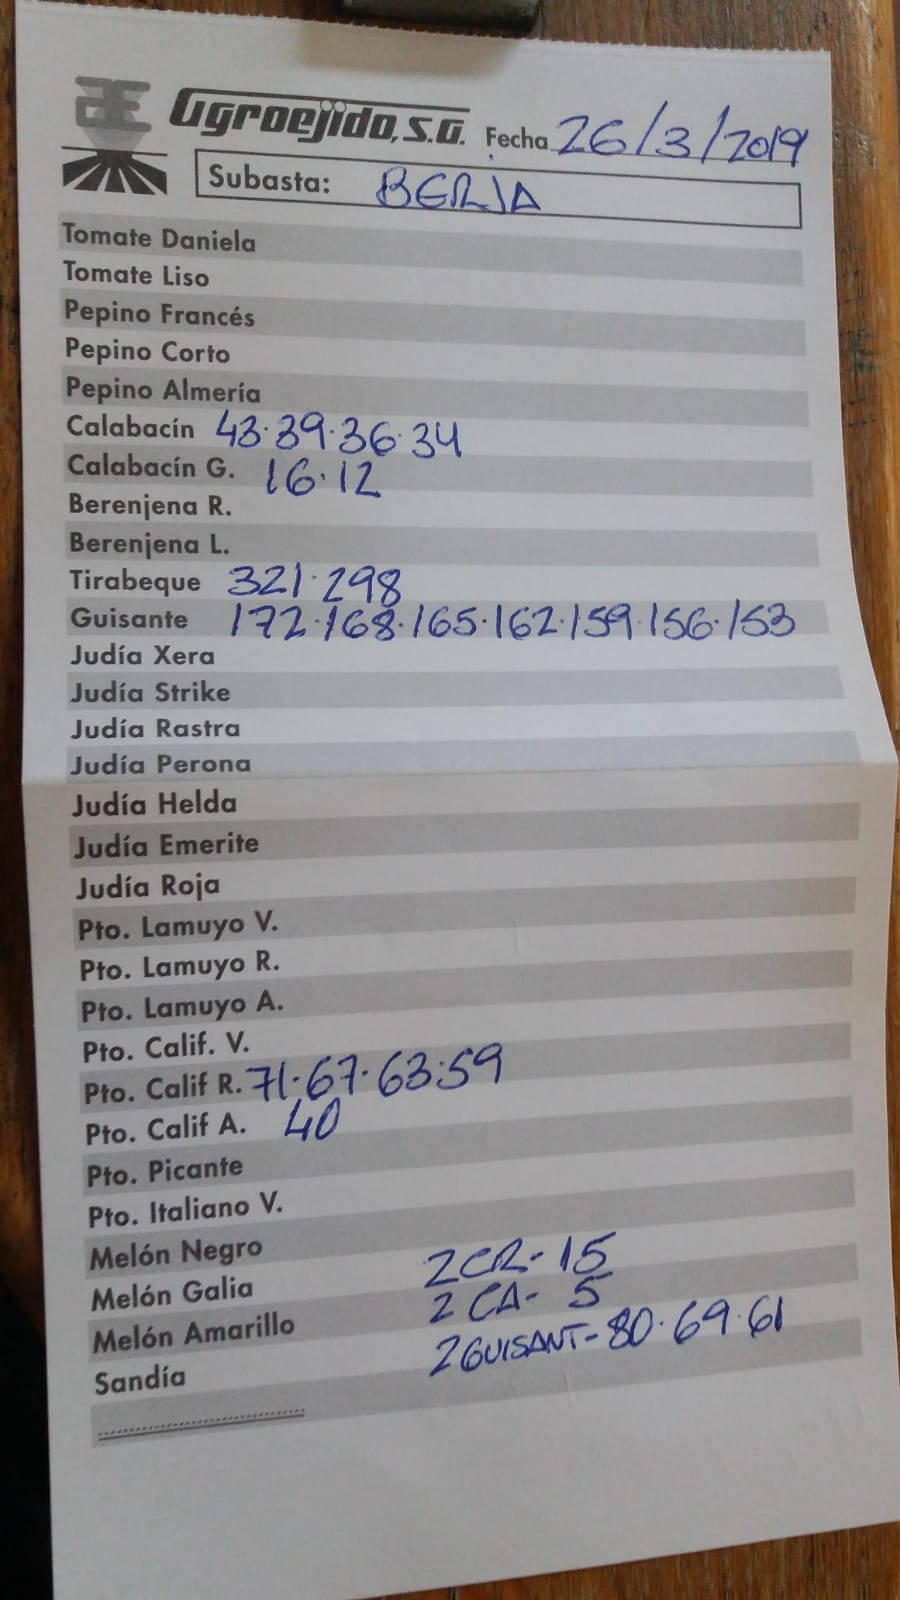 Agroejido, S.A. Fecha 26/3/2019
Subasta: BERJA
Tomate Daniela
Tomate Liso
Pepino Francés
Pepino Corto
Pepino Almería
Calabacín 43·39·36·34
Calabacín G. 16·12
Berenjena R.
Berenjena L.
Tirabeque 321·298
Guisante 172·168·165·162·159·156·153
Judía Xera
Judía Strike
Judía Rastra
Judía Perona
Judía Helda
Judía Emerite
Judía Roja
Pto. Lamuyo V.
Pto. Lamuyo R.
Pto. Lamuyo A.
Pto. Calif. V.
Pto. Calif R. 71·67·63·59
Pto. Calif A. 40
Pto. Picante
Pto. Italiano V.
Melón Negro
Melón Galia 2CR- 15
Melón Amarillo 2 CA- 5
Sandía 2GUISANT- 80·69·61